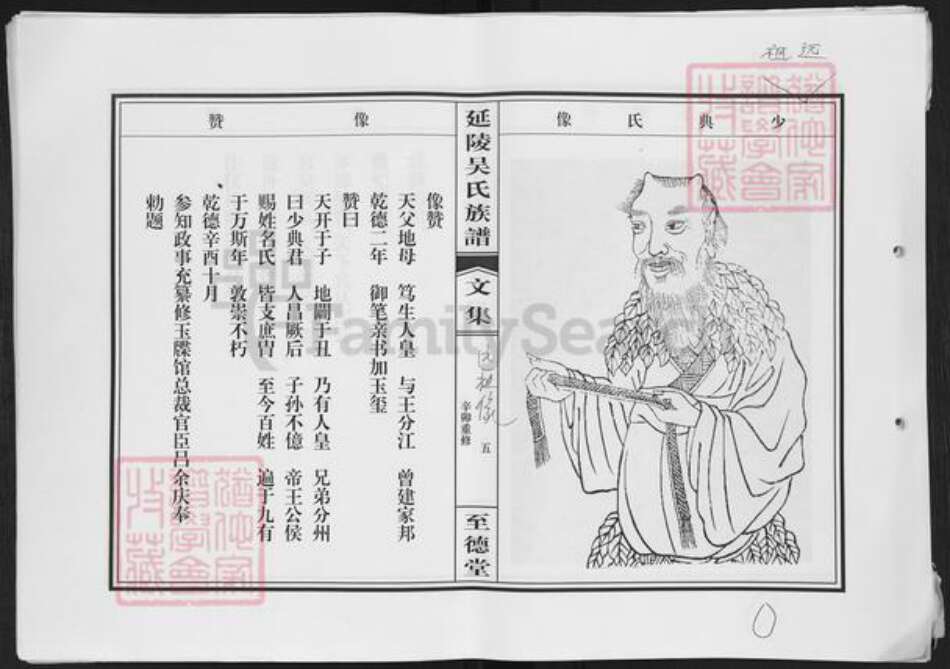 祖 远
少典氏像
延陵吴氏族譜
文集
五
辛卯重修
至德堂
像赞
像赞
天父地母 笃生人皇 与王分江 曾建家邦
乾德二年 御笔亲书加玉玺
赞曰
天开于子 地闢于丑 乃有人皇 兄弟分州
曰少典君 人昌厥后 子孙不億 帝王公侯
赐姓名氏 皆支庶冑 至今百姓 遍于九有
于万斯年 敦崇不朽
乾德辛酉十月
参知政事充纂修玉牒馆总裁官臣吕余庆奉
勅题
FamilySearch